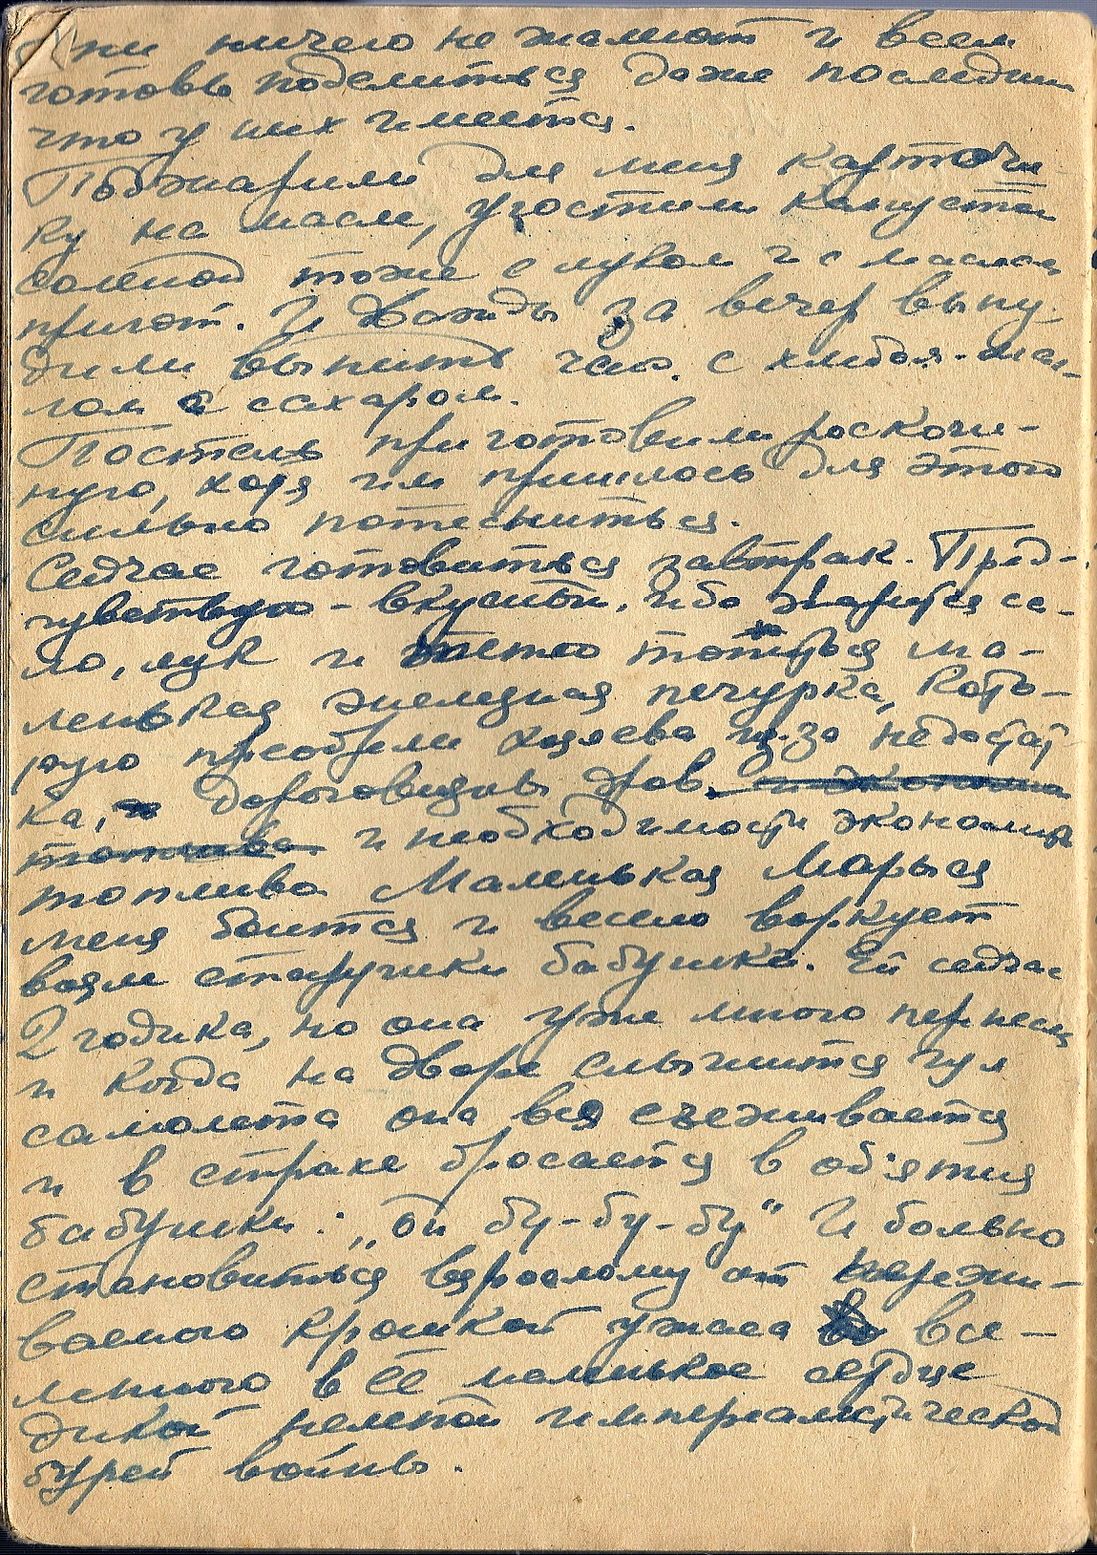 Они ничего не жалеют и всем
готовы поделиться даже последним
что у них имеется.
Поджарили для меня карточ-
ку на масле, угостили капустой
соленой тоже с луком и с маслом
пригот. И дважды за вечер выну-
дили выпить чаю с хлебом-са-
лом и сахаром.
Постель приготовили роскош-
ную, хотя им пришлось для этого
сильно потесниться.
Сейчас готовиться завтрак. Пред-
чувствую - вкусный, ибо жарится са-
ло, лук и топиться ма-
ленькая железная печурка, кото-
рую приобрели хозяева из-за недостат-
ка, дороговизны дров
и необходимости экономить
топливо. Маленькая Марыся
меня боится и весело воркует
возле старушки бабушки. Ей сейчас
2 годика, но она уже много перенесла
и когда на дворе слышится гул
самолета она вся съеживается
и в страхе бросается в об'ятия
бабушки: „Ой бу-бу-бу" И больно
становиться взрослому от пережи-
ваемого крошкой ужаса все-
ленного в её маленькое сердце
дикой нелепой империалистической
бурей войны.